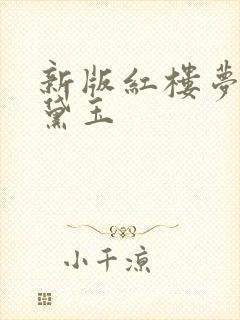 新版紅楼夢
黛玉
小千涼